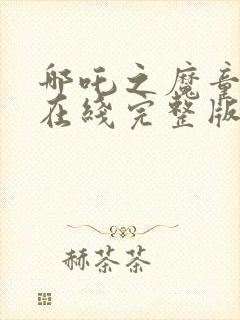 哪吒之魔童
在线完整版
赫茶茶